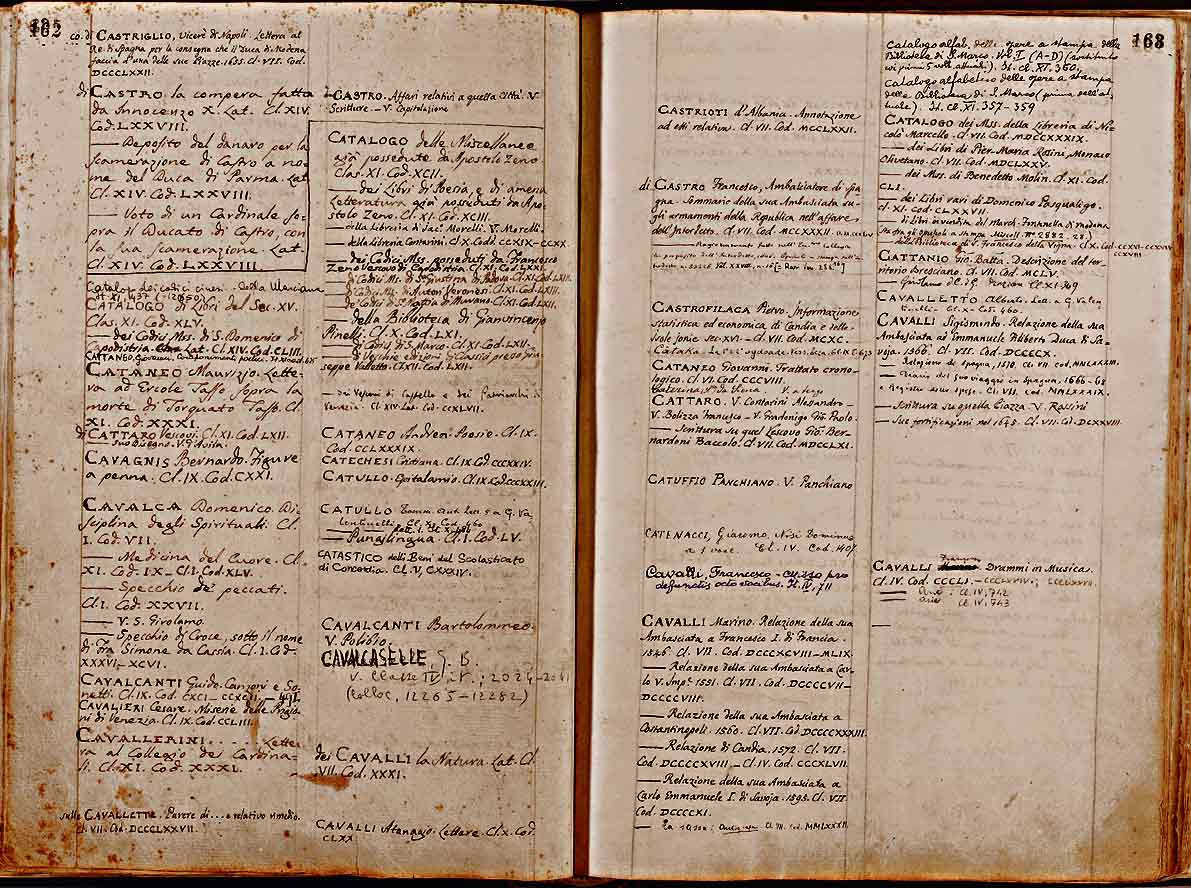 162
co. di CASTRIGLIO, Vicerè di Napoli. Lettera al
Re di Spagna per la consegna che il Duca di Modena
faccia d'una delle sue Piazze. 1635. Cl. VII. Cod.
DCCCLXXII.
di CASTRO la compera fatta
da Innocenzo X. Lat. Cl. XIV.
Cod. LXXVIII.
— Deposito del danaro per la
scamerazione di Castro a no-
me del Duca di Parma. Lat.
Cl. XIV. Cod. LXXVIII.
— Voto di un Cardinale so-
pra il Ducato di Castro, con
la sua scamerazione. Lat.
Cl. XIV. Cod. LXXVIII.
Catalogo dei codici
CATALOGO di Libri del Sec. XV.
Clas. XI. Cod. XLV.
— dei Codici Mss. di S. Domenico di
Capodistria. Lat. Cl. XIV. Cod. CLIII.
CATANEO Maurizio. Lette-
ra ad Ercole Tasso sopra la
morte di Torquato Tasso. Cl.
XI. Cod. XXXI.
di CATTARO Vescovi. Cl. XI. Cod. LXII.
CAVAGNIS Bernardo. Figure
a penna. Cl. IX. Cod. CXXI.
CAVALCA Domenico. Di-
sciplina degli Spirituali. Cl.
I. Cod. VII.
— Medicina del Cuore. Cl.
XI. Cod. IX — Cl. I. Cod. XLV.
— Specchio de' peccati.
Cl. I. Cod. XXVII.
— V. S. Girolamo.
— Specchio di Croce, sotto il nome
di Fra Simone da Cassia. Cl. I. Cod.
XXXVI — XCVI.
CAVALCANTI Guido. Canzoni e So-
netti. Cl. IX. Cod. CXCI — CCXCII. — 491.
CAVALIERI Cesare. Miserie delle Prigio-
ni di Venezia. Cl. IX. Cod. CCLIII.
CAVALLERINI . . . . . Lette-
ra al Collegio dei Cardina-
li. Cl. XI. Cod. XXXI.
sulle CAVALLETTE. Parere di . . . e relativo rimedio.
Cl. VII. Cod. DCCCLXXVII.
CASTRO. Affari relativi a quella Città. V.
Scritture. — V. Capitolazione
CATALOGO delle Miscellanee
già possedute da Apostolo Zeno
Clas. XI. Cod. XCII.
— dei Libri di Poesia, e di amena
Letteratura già posseduti da Apo-
stolo Zeno. Cl. XI. Cod. XCIII.
— della Libreria di Jac. Morelli. V. Morelli
— della Libreria Contarini. Cl. X. Codd. CCXIX — CCXX.
— dei Codici Mss. posseduti da Francesco
Zeno Vescovo di Capodistria. Cl. XI. Cod. LXXI.
— di Codici Ms. di S. Giustina di Padova. Cl. XI. Cod. LXII.
— di Codici Ms. di Autori Veronesi. Cl. XI. Cod. LXIII.
— de' Codici di S. Mattia di Murano. Cl. XI. Cod. LXII.
— della Biblioteca di Gianvincenzo
Pinelli. Cl. X. Cod. LXI.
— di Codici di S. Marco. Cl. XI. Cod. LXII.
— di Vecchie edizioni di Classici presso Giu-
seppe Valletta. Cl. XII. Cod. LXII.
— dei Vescovi di Castello e dei Patriarchi di
Venezia. Cl. XIV. Lat. Cod. CCXLVII.
CATANEO Andrea. Poesie. Cl. IX.
Cod. CCLXXXIX.
CATECHESI Cristiana. Cl. IX. Cod. CCCXXIV.
CATULLO. Epitalamio. Cl. IX. Cod. CCCXXXIII.
CATULLO Tomm. Ant. Lett. 5 a G. Va-
lentinelli. Cl. X. Cod. 460
— Pungilingua. Cl. I. Cod. LV.
CATASTICO delli Beni del Scolasticato
di Concordia. Cl. V, CXXXIV.
CAVALCANTI Bartolommeo.
V. Polibio.
CAVALCASELLE, G. B.
V. Classe IV, It., 2024-2041
(Colloc. 12265 — 12282)
dei CAVALLI la Natura. Lat. Cl.
VII. Cod. XXXI.
CAVALLI Atanagio. Lettere. Cl. X. Cod.
CLXX.
163
CASTRIOTI d'Albania. Annotazione
ad essi relativa. Cl. VII. Cod. MCCLXXII.
di CASTRO Francesco, Ambasciatore di Spa-
gna. Sommario della sua Ambasciata su-
gli armamenti della Repubblica nell'affare
dell'Interdetto. Cl. VII. Cod. MCCXXXII.
CASTROFILACA Pietro. Informazione
statistica ed economica di Candia e delle
Isole Jonie sec. XVI — Cl. VII. Cod. MCXC.
CATANEO Giovanni. Trattato crono-
logico. Cl. VI. Cod. CCCVIII.
CATTARO. V. Contarini Alessandro —
V. Bolizza Francesco — V. Gradenigo Gio. Paolo.
— Scrittura su quel Vescovo Gio. Ber-
nardoni Baccolo. Cl. VII. Cod. MDCCLXI.
CATUFFIO PANCHIANO. V. Panchiano
CATENACCI, Giacomo, Nisi Dominus
a 5 voci. Cl. IV. Cod. 1401
Cavalli, Francesco — Messa pro
defunctis octo vocibus. It. IV, 711
CAVALLI Marino. Relazione della sua
Ambasciata a Francesco I. di Francia.
1546. Cl. VII. Cod. DCCCXCVIII — MLIX.
— Relazione della sua Ambasciata a Car-
lo V. Impr. 1551. Cl. VII. Cod. DCCCCVII —
DCCCCVIII.
— Relazione della sua Ambasciata a
Costantinopoli. 1560. Cl. VII. Cod. DCCCXXXIII.
— Relazione di Candia. 1572. Cl. VII.
Cod. DCCCCXVIII — Cl. IV. Cod. CCCXLVII.
— Relazione della sua Ambasciata a
Carlo Emmanuele I. di Savoja. 1595. Cl. VII.
Cod. DCCCCXI.
Catalogo alfab. delle opere a stampa della
Biblioteca di S. Marco. Vol. I (A-D) (sostituito
coi primi 5 voll. attuali). It. Cl. XI. 360.
Catalogo alfabetico delle opere a stampa
della Biblioteca di S. Marco (prima dell'at-
tuale). It. Cl. XI. 357-359
CATALOGO dei Mss. della Libreria di Ni-
colò Marcello. Cl. VII. Cod. MDCCXXXIX.
— dei Libri di Pier-Maria Rosini, Monaco
Olivetano. Cl. VII. Cod. MDCLXXV.
— dei Mss. di Benedetto Molin. Cl. XI. Cod.
CLI.
— dei Libri rari di Domenico Pasqualigo.
Cl. XI. Cod. CLXXVII.
— della Biblioteca di S. Francesco della Vigna. Cl. X. Cod. CCXVI-CCXVII
CATTANIO Gio. Batta. Descrizione del ter-
ritorio bresciano. Cl. VII. Cod. MCLV.
CAVALLETTO Alberto. Lett. a G. Valen-
tinelli. Cl. X. Cod. 460.
CAVALLI Sigismondo. Relazione della sua
Ambasciata ad Emmanuele Filiberto Duca di Sa-
voja. 1566. Cl. VII. Cod. DCCCCX.
— Relazione di Spagna, 1570. Cl. VII. Cod. MNLXXXIX.
— Diario del suo viaggio in Spagna, 1566-68
e Registro delle spese. Cl. VII. Cod. MNLXXXIX.
— Scrittura su quella Piazza. V. Rossini
— Sue fortificazioni nel 1645. Cl. VII. Cod. DCXXVIII.
CAVALLI Drammi in Musica.
Cl. IV. Cod. CCCLI. — CCCLXXIV;
— Arie. Cl. IV, 742
— Arie Cl. IV, 743